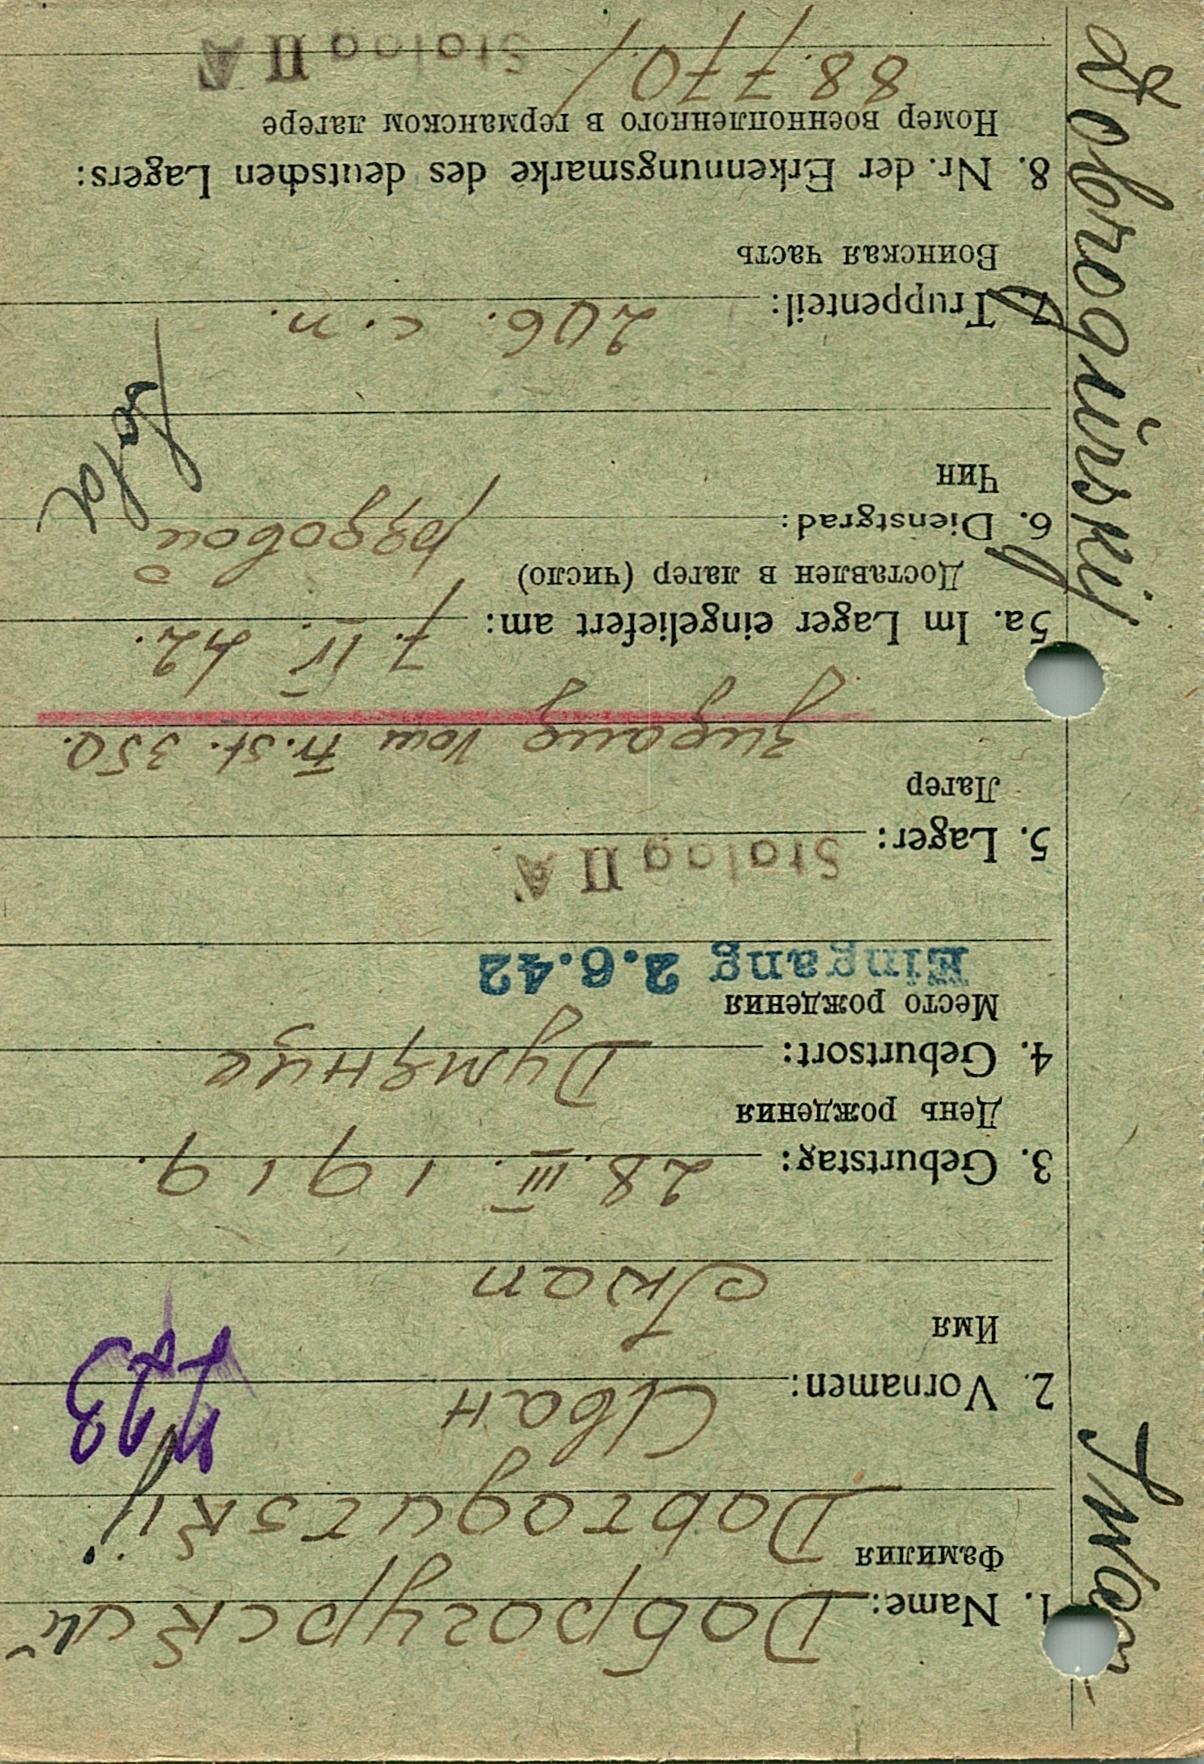 Dobrogurskij Iwan
1. Name: Доброгурский
Фамилия
Dobrogurskij
2. Vornamen: Иван
Имя
Iwan
3. Geburtstag: 28. III. 1919.
День рождения
4. Geburtsort: Думянце
Место рождения
Eingang 2.6.42
5. Lager: Stalag II A.
Лагер
Zugang vom Fr. St. 350.
5a. Im Lager eingeliefert am: 7. IV. 42.
Доставлен в лагер (число)
6. Dienstgrad: рядовой
Чин
Sold
7. Truppenteil: 206. с.п.
Воинская часть
8. Nr. der Erkennungsmarke des deutschen Lagers:
Номер военнопленного в германском лагере
88.770/
Stalag II A